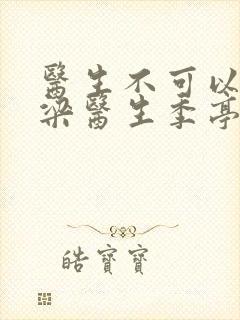 醫生不可以
梁醫生季亭
皓寶寶